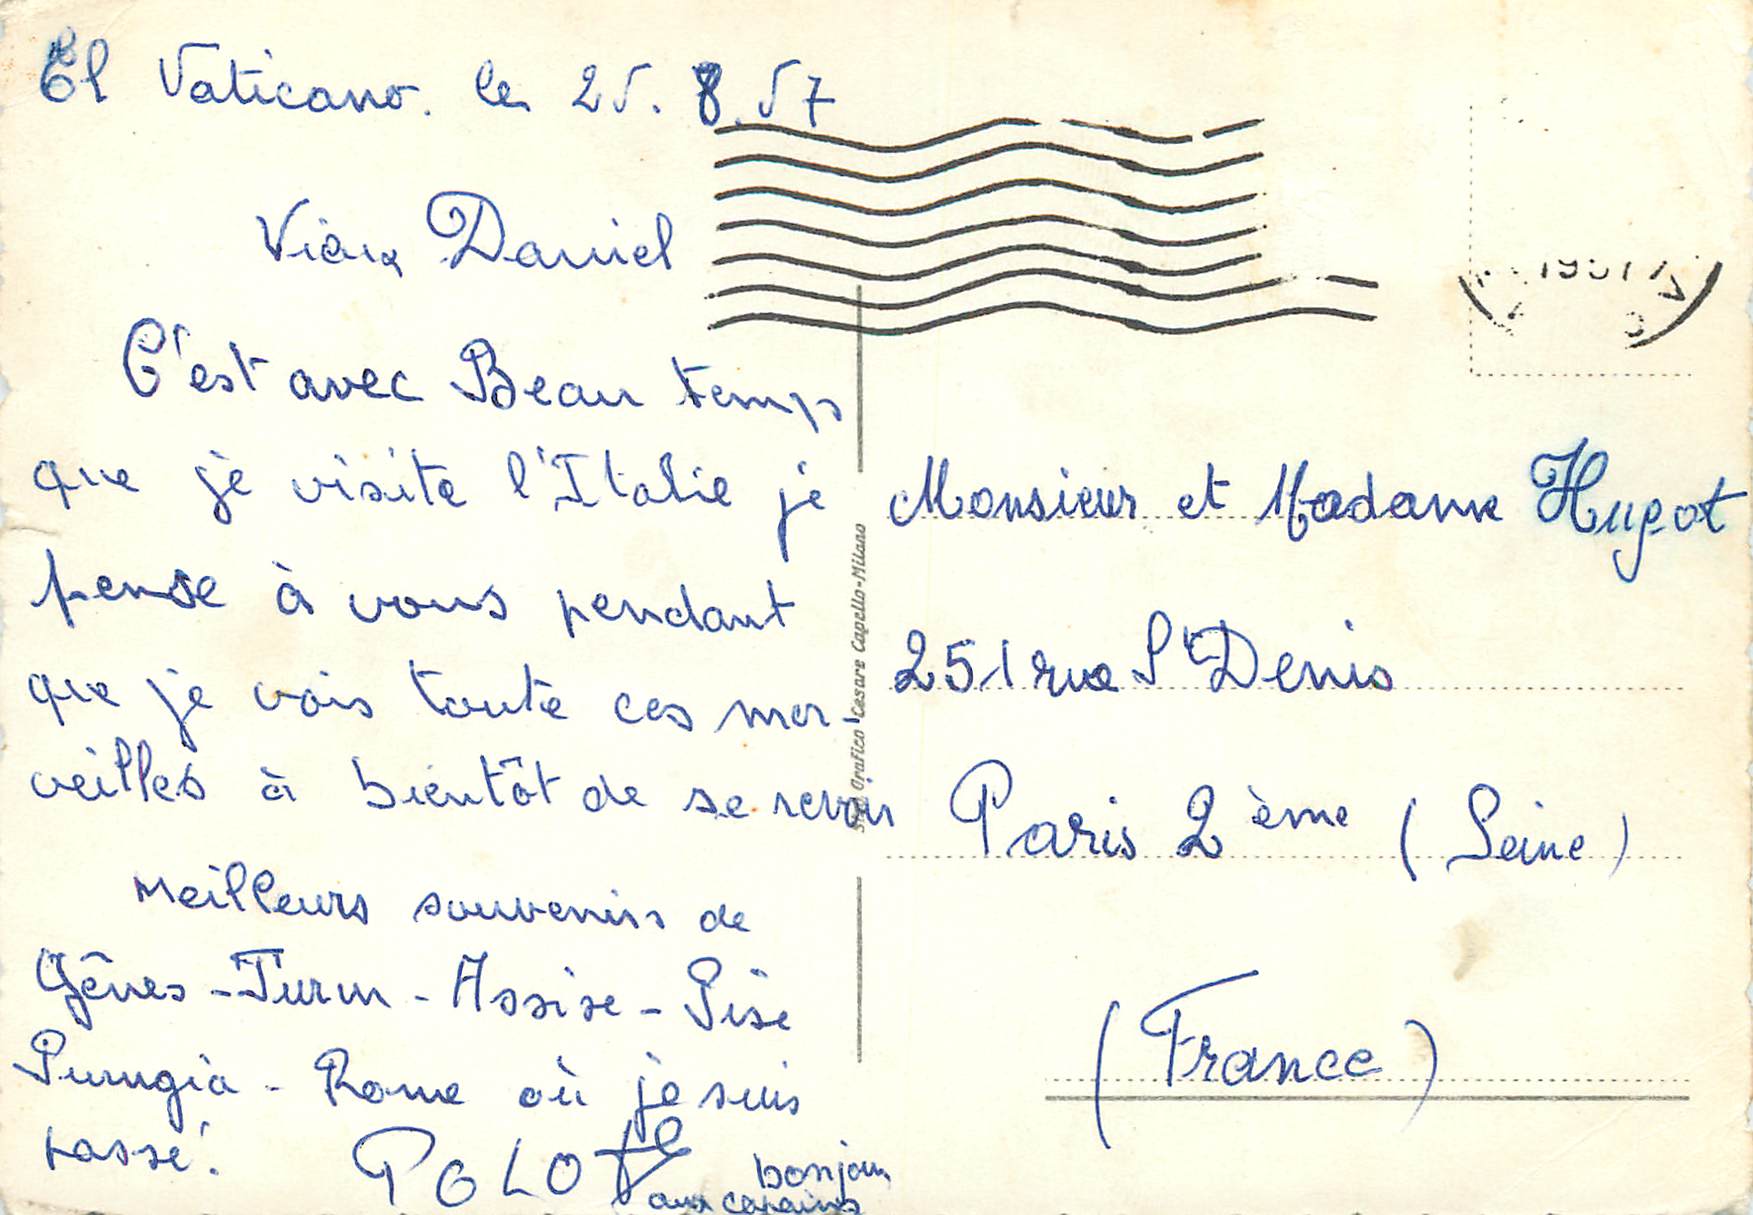 El Vaticano. le 25. 8. 57
Vieux Daniel
C'est avec Beau temps
que je visite l'Italie je
pense à vous pendant
que je vois toute ces mer-
veilles à bientôt de se revoir
Meilleurs souvenirs de
Gênes - Turin - Assise - Pise
Perugia - Rome où je suis
passé.
POLO
bonjour
aux copains
Stab. Grafico Cesare Capello-Milano
Monsieur et Madame Hugot
251 rue St Denis
Paris 2ème (Seine)
(France)